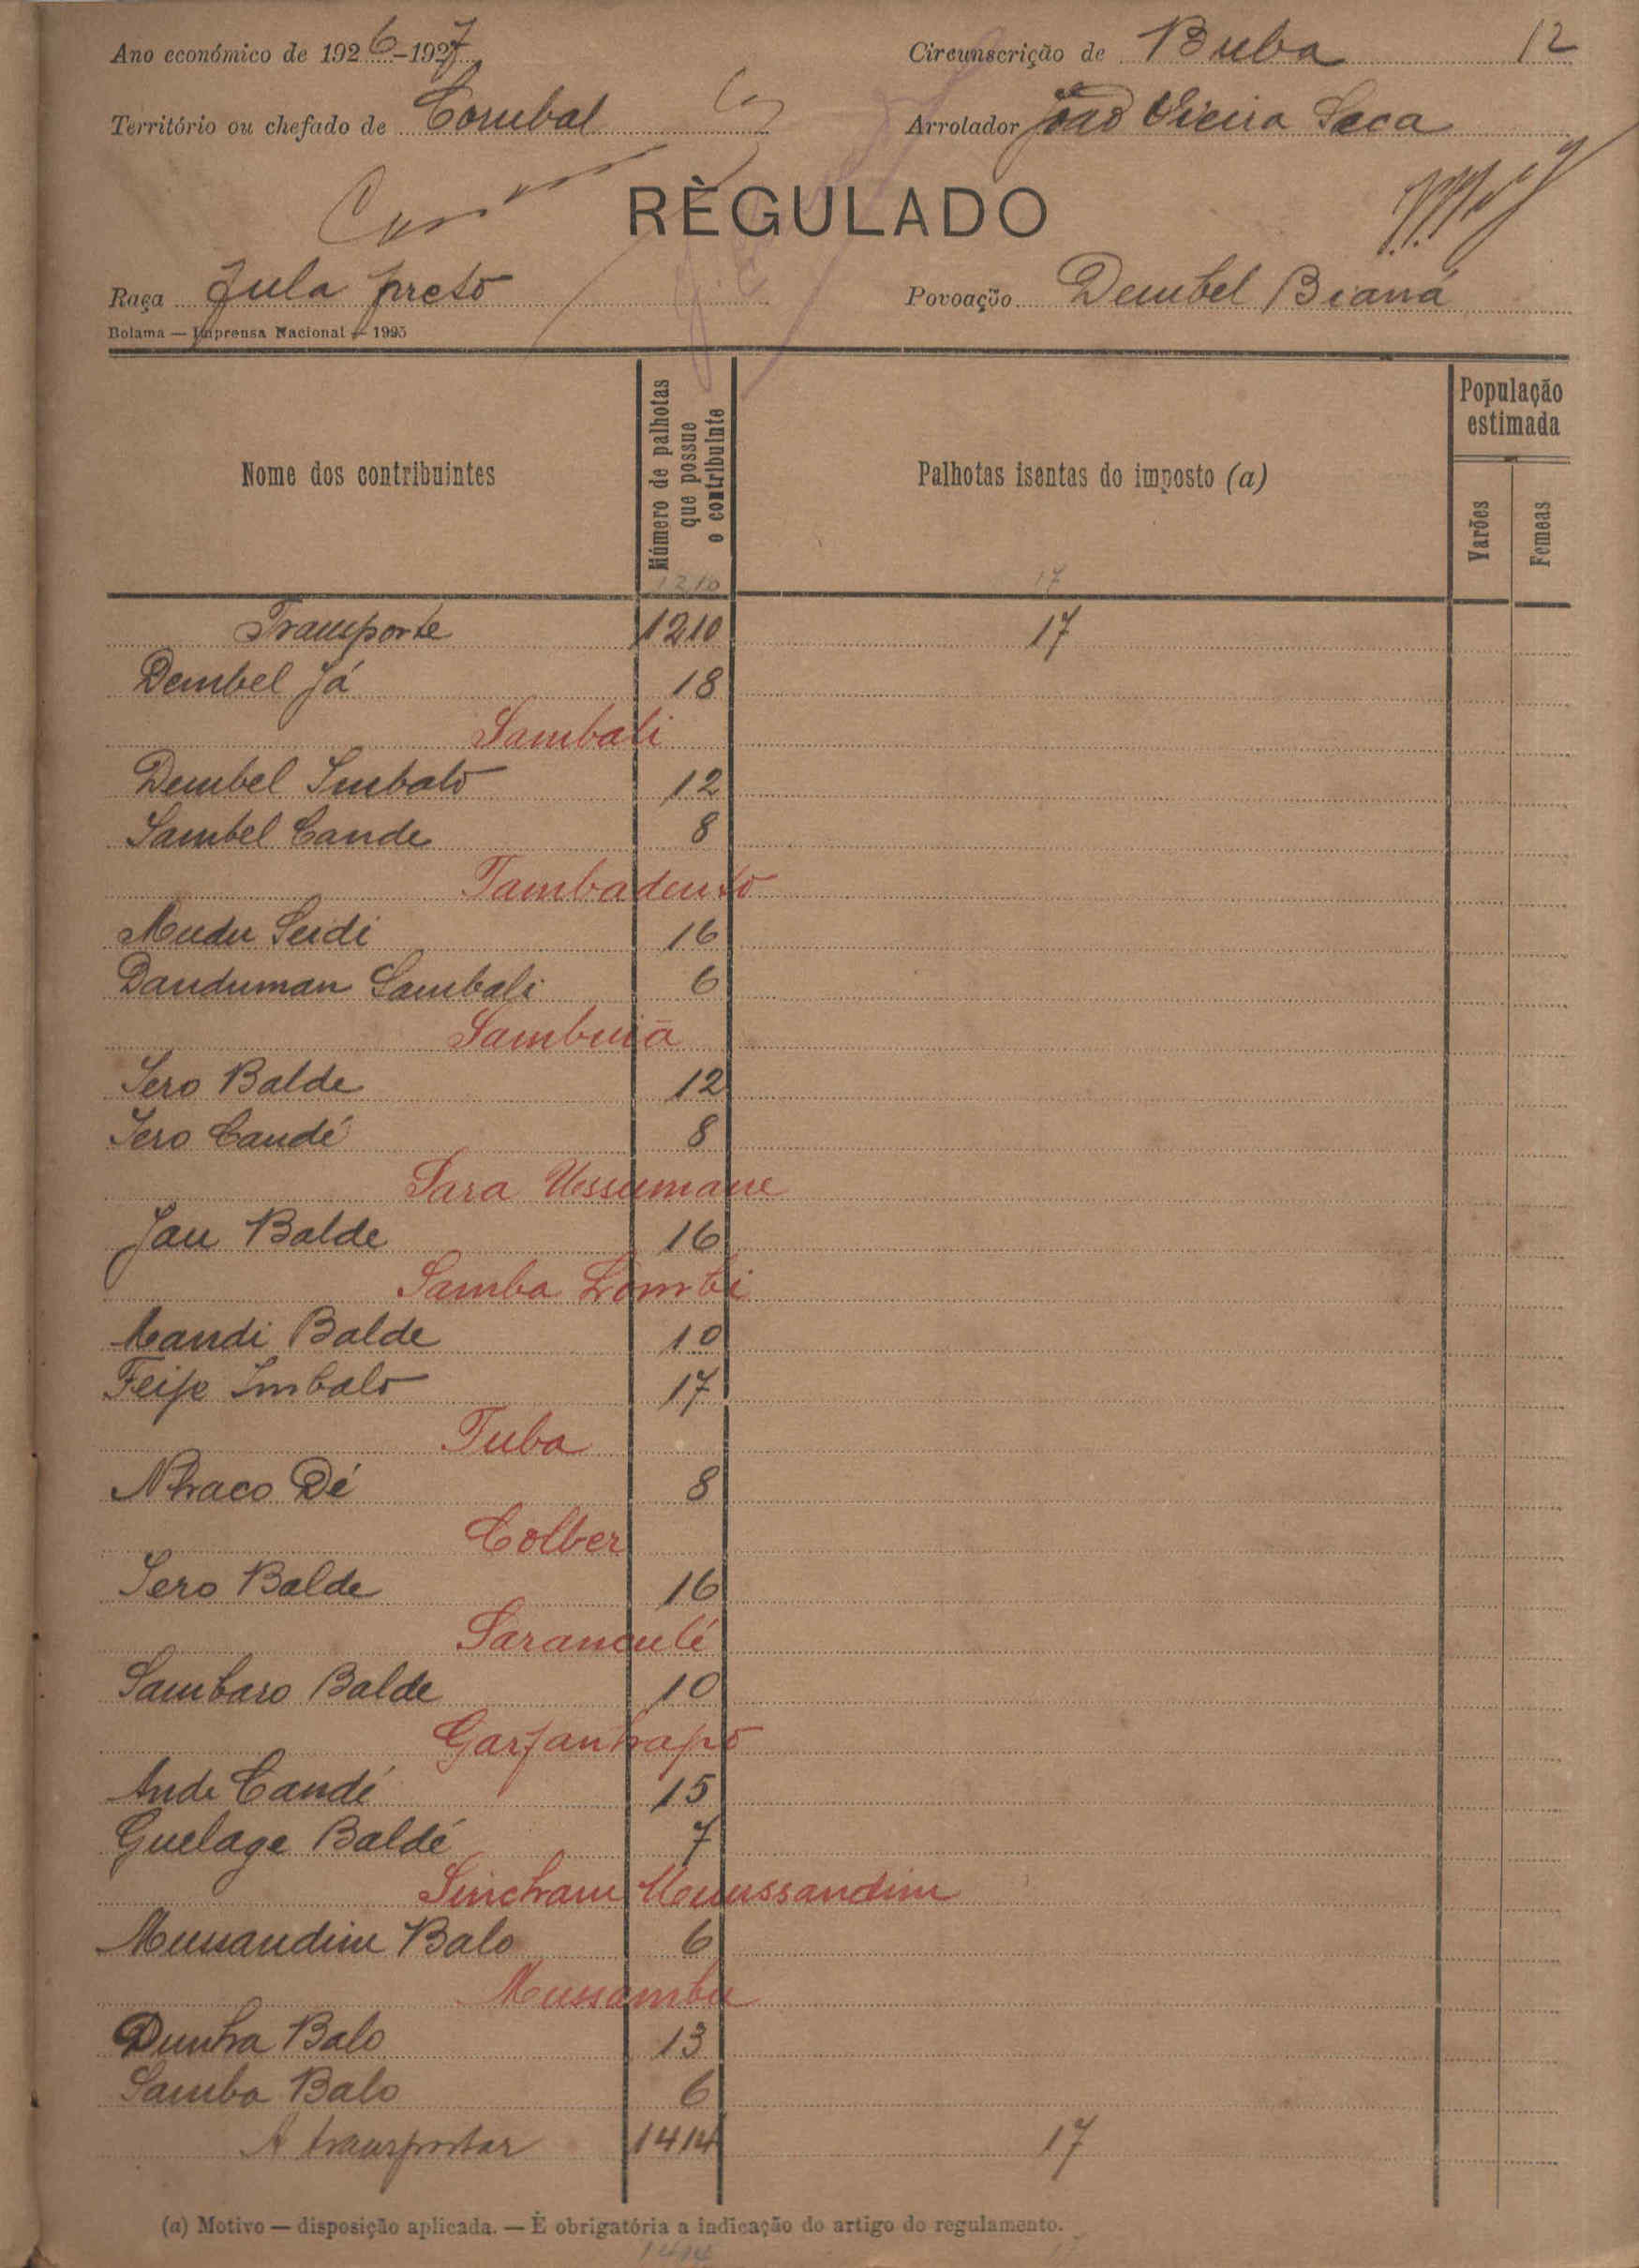 Ano económico de 1926-1927 Circunscrição de Buba 12
Território ou chefado de Corubal Arrolador João Vieira Seca
RÈGULADO
Raça Fula preto Povoação Dembel Bianá
Bolama — Imprensa Nacional — 1925
Nome dos contribuintes
Número de palhotas que possue o contribuinte
Palhotas isentas do imposto (a)
População estimada
Varões
Femeas
1210 17
Transporte 1210 17
Dembel Já 18
Sambali
Dembel Imbalo 12
Sambel Cande 8
Tambadento
Mudu Seidi 16
Danduman Sambali 6
Sambuiā
Sero Balde 12
Sero Candé 8
Sara Ussumane
Jau Balde 16
Samba Lombi
Mandi Balde 10
Imbalo 17
Tuba
Nhaco Dé 8
Colber
Sero Balde 16
Saranculé
Sambaro Balde 10
Garjanhapo
Ande Candé 15
Guelage Baldé 7
Sincham Mussandim
Mussandim Balo 6
Mussambu
Dunha Balo 13
Samba Balo 6
A transportar 1414 17
(a) Motivo — disposição aplicada. — É obrigatória a indicação do artigo do regulamento.
1414